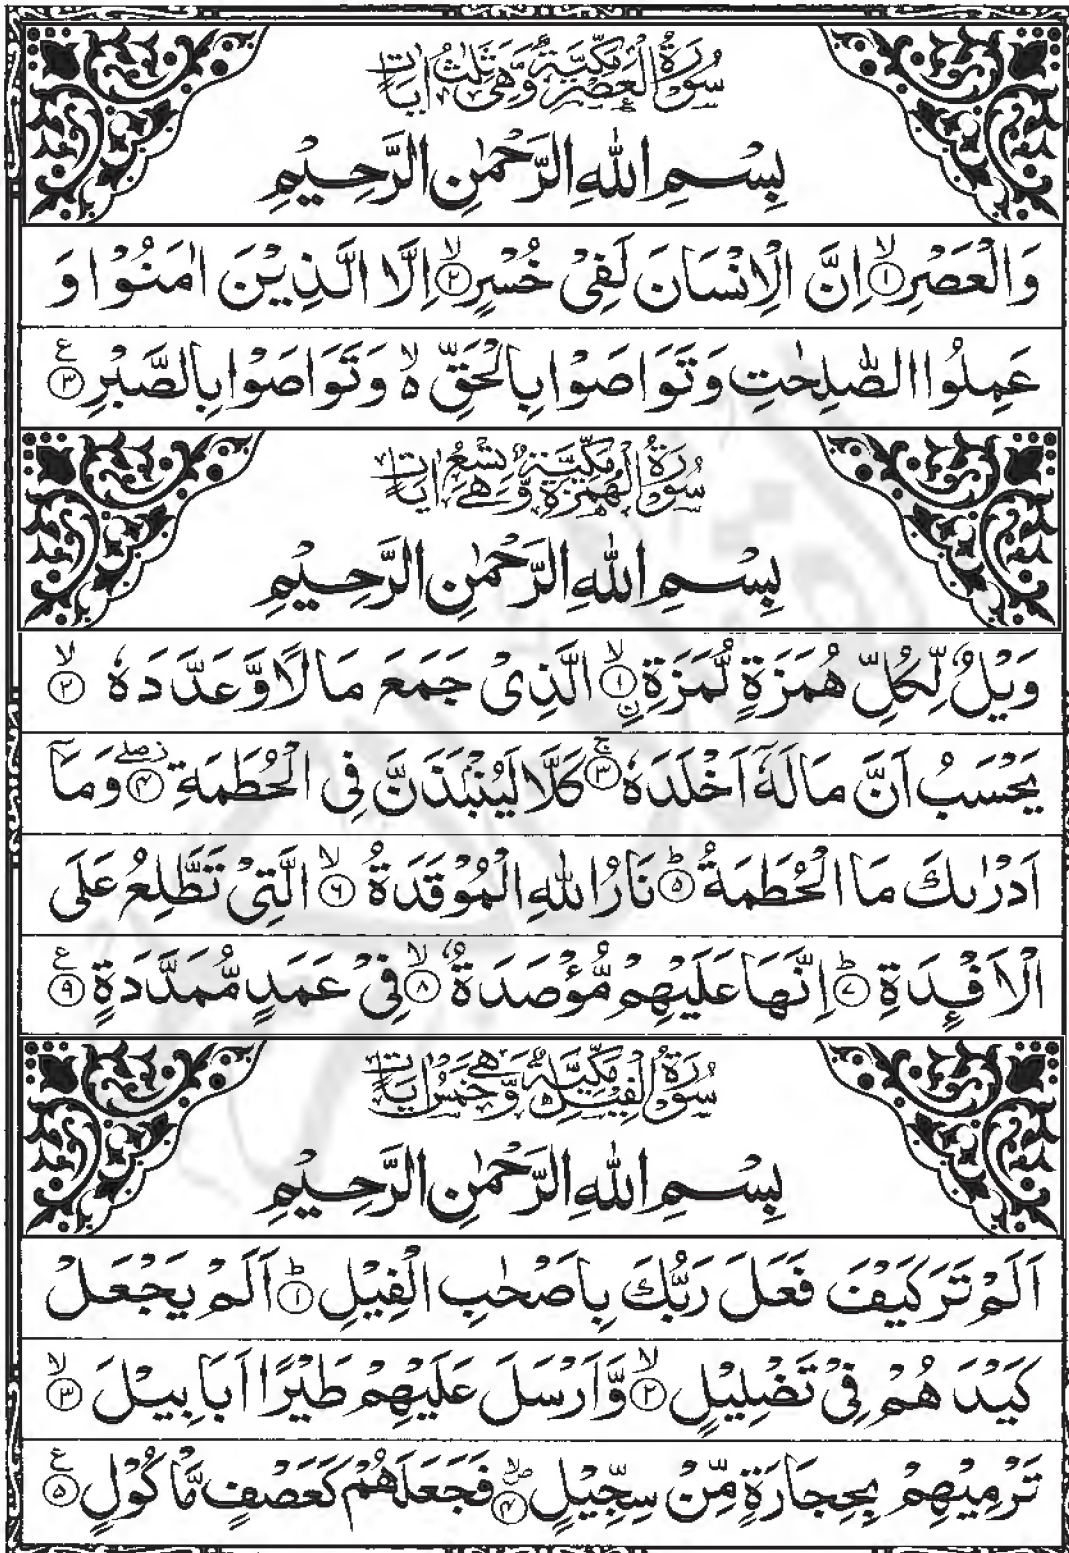 سُوْرَةُ الْعَصْرِ مَكِّيَّةٌ وَّهِيَ ثَلٰثُ اٰيَاتٍ
بِسْمِ اللّٰهِ الرَّحْمٰنِ الرَّحِيْمِ
وَالْعَصْرِ ۙ﴿۱﴾ اِنَّ الْاِنْسَانَ لَفِیْ خُسْرٍ ۙ﴿۲﴾ اِلَّا الَّذِیْنَ اٰمَنُوْا وَ
عَمِلُوا الصّٰلِحٰتِ وَتَوَاصَوْا بِالْحَقِّ ۙ۬ وَتَوَاصَوْا بِالصَّبْرِ ﴿۳﴾ ع
سُوْرَةُ الْهُمَزَةِ مَكِّيَّةٌ وَّهِيَ تِسْعُ اٰيَاتٍ
بِسْمِ اللّٰهِ الرَّحْمٰنِ الرَّحِيْمِ
وَیْلٌ لِّكُلِّ هُمَزَةٍ لُّمَزَةِ ۙ﴿۱﴾ ِ۟الَّذِیْ جَمَعَ مَالًا وَّعَدَّدَهٗ ۙ﴿۲﴾
یَحْسَبُ اَنَّ مَالَهٗۤ اَخْلَدَهٗ ۚ﴿۳﴾ كَلَّا لَیُنْۢبَذَنَّ فِی الْحُطَمَةِ ﴿۴﴾ زصلے وَمَاۤ
اَدْرٰىكَ مَا الْحُطَمَةُ ؕ﴿۵﴾ نَارُ اللّٰهِ الْمُوْقَدَةُ ۙ﴿۶﴾ الَّتِیْ تَطَّلِعُ عَلَی
الْاَفْـِٕدَةِ ؕ﴿۷﴾ اِنَّهَا عَلَیْهِمْ مُّؤْصَدَةٌ ۙ﴿۸﴾ فِیْ عَمَدٍ مُّمَدَّدَةٍ ﴿۹﴾ ع
سُوْرَةُ الْفِيْلِ مَكِّيَّةٌ وَّهِيَ خَمْسُ اٰيَاتٍ
بِسْمِ اللّٰهِ الرَّحْمٰنِ الرَّحِيْمِ
اَلَمْ تَرَ كَیْفَ فَعَلَ رَبُّكَ بِاَصْحٰبِ الْفِیْلِ ؕ﴿۱﴾ اَلَمْ یَجْعَلْ
كَیْدَهُمْ فِیْ تَضْلِیْلٍ ۙ﴿۲﴾ وَّاَرْسَلَ عَلَیْهِمْ طَیْرًا اَبَابِیْلَ ۙ﴿۳﴾
تَرْمِیْهِمْ بِحِجَارَةٍ مِّنْ سِجِّیْلٍ ﴿۴﴾ صلا فَجَعَلَهُمْ كَعَصْفٍ مَّاْكُوْلٍ ﴿۵﴾ ع